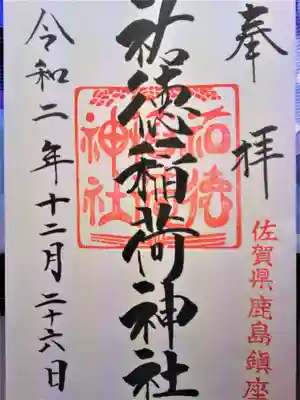 奉拝
佐賀県鹿島鎮座
祐徳稲荷神社
令和二年十二月二十六日